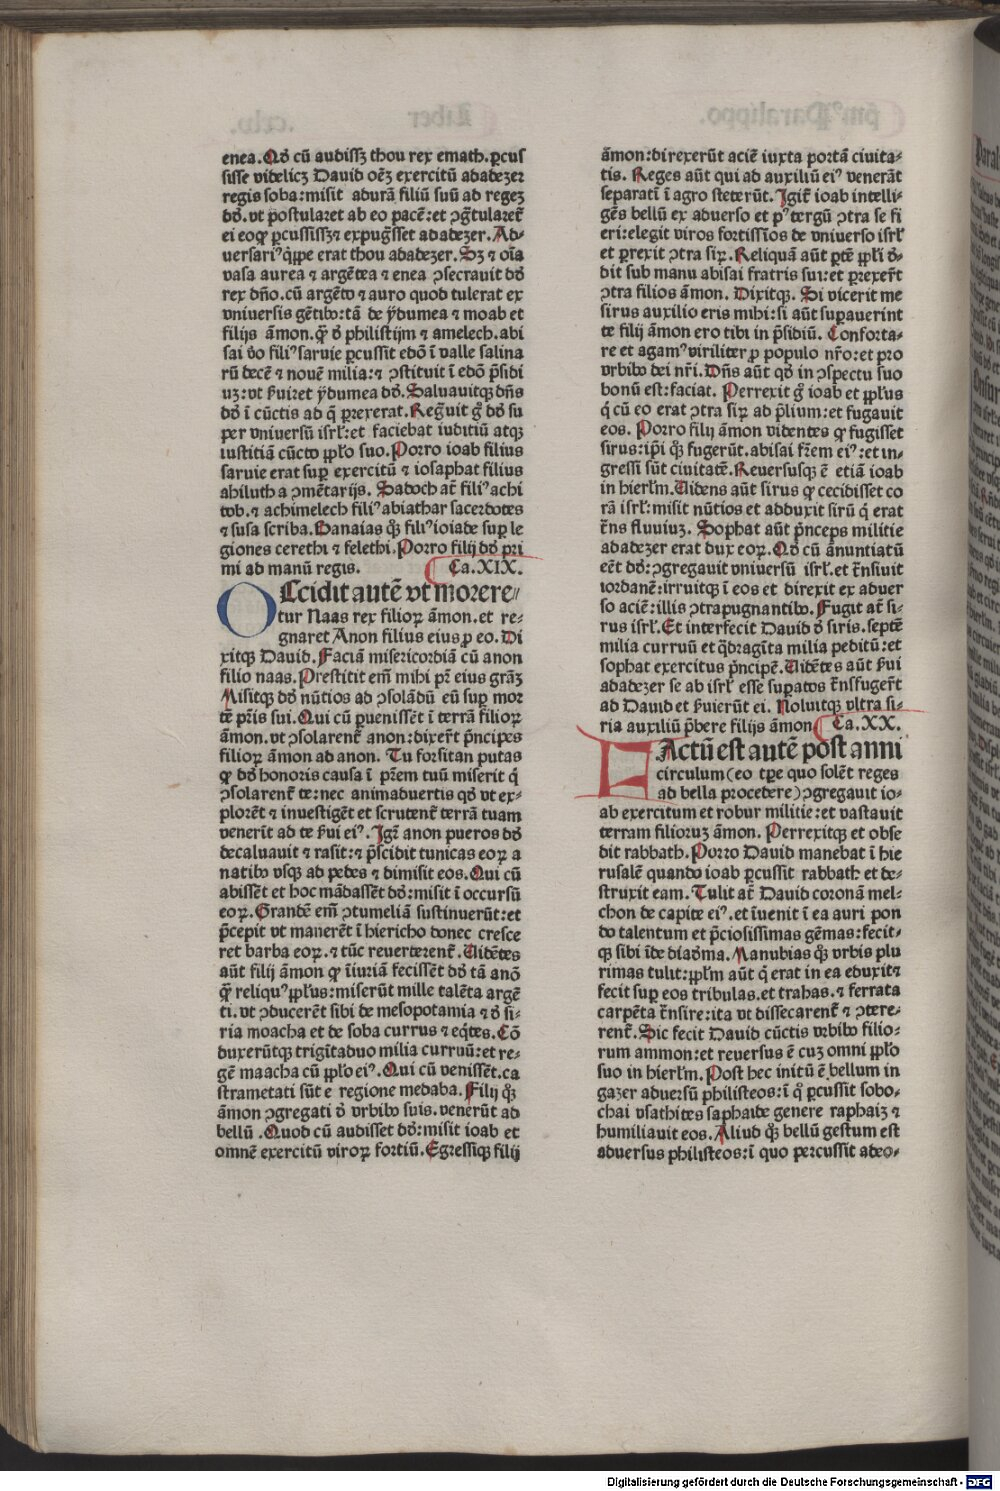 enea. Qđ cũ audissꝫ thou rex emath. ꝑcus
sisse videlicꝫ Dauid oēꝫ exercitũ adadeꝫer
regis soba: misit adurā filiũ suũ ad regeꝫ
dđ. vt postularet ab eo pacē: et ↄgͣtularet᷑
ei eoqꝫ ꝑcussissꝫ ⁊ expugͣsset adadeꝫer. Ad-
uersariꝰ qͥppe erat thou adadeꝫer. Sꝫ ⁊ oĩa
vasa aurea ⁊ argētea ⁊ enea ↄsecrauit dđ
rex dño. cũ argēto ⁊ auro quod tulerat ex
vniuersis gētibꝰ: tā de ydumea ⁊ moab et
filijs āmon. qͣ de philistijm ⁊ amelech. abi
sai vo filiꝰ saruie ꝑcussit edō ĩ valle salina
rũ decē ⁊ nouē milia: ⁊ ↄstituit ĩ edō p̃sidi
uꝫ: vt ẜuiret ydumea dđ. Saluauitqꝫ dñs
dđ ĩ cũctis ad q̃ ꝑrexerat. Regͣuit gͦ dđ su
per vniuersũ isrł: et faciebat iuditiũ atqꝫ
iustitiā cũcto ppło suo. Porro ioab filius
saruie erat suꝑ exercitũ ⁊ iosaphat filius
ahilud a ↄmētarijs. Sadoch at̃ filiꝰ achi
tob. ⁊ achimelech filiꝰ abiathar sacerdotes
⁊ susa scriba. Banaias qͦꝫ filiꝰ ioiade suꝑ le
giones cerethi ⁊ felethi. Porro filij dđ pri
mi ad manũ regis. Ca.XIX.
OCcidit autē vt morere
tur Naas rex filioꝝ āmon. et re-
gnaret Anon filius eius ꝓ eo. Di
xitqꝫ Dauid. Faciā misericordiā cũ anon
filio naas. Prestitit em̄ mihi pr̃ eius grāꝫ
Misitqꝫ dđ nũtios ad ↄsolādũ eũ suꝑ mor
tē pr̃is sui. Qui cũ ꝑuenissēt ĩ terrā filioꝝ
āmon. vt ↄsolarent᷑ anon: dixer̃t p̃ncipes
filioꝝ āmon ad anon. Tu forsitan putas
qꝫ dđ honoris causa ĩ pr̃em tuũ miserit q̃
ↄsolarent᷑ te: nec animaduertis qđ vt ex-
plorēt ⁊ inuestigēt et scrutent᷑ terrā tuam
venerĩt ad te ẜui eiꝰ. Igr̃ anon pueros dđ
decaluauit ⁊ rasit: ⁊ p̃scidit tunicas eoꝝ a
natibꝰ vsqꝫ ad pedes ⁊ dimisit eos. Qui cũ
abissēt et hoc mādassēt dđ: misit ĩ occursũ
eoꝝ. Grandē em̄ ↄtumeliā sustinuerũt: et
p̃cepit vt manerēt ĩ hiericho donec cresce
ret barba eoꝝ. ⁊ tũc reuerterent᷑. Uidētes
aũt filij āmon qꝫ ĩiuriā fecissēt dđ tā anō
qͣ reliquꝰ ppłus: miserũt mille talēta argē
ti. vt ↄducerēt sibi de mesopotamia ⁊ de si-
ria moacha et de soba currus ⁊ eqͥtes. Cō
duxerũtqꝫ trigĩtaduo milia curruũ: et re-
gē maacha cũ ppło eiꝰ. Qui cũ venissēt. ca
strametati sũt e regione medaba. Filij qͦꝫ
āmon ↄgregati de vrbibꝰ suis. venerũt ad
bellũ. Quod cũ audisset dđ: misit ioab et
omnē exercitũ viroꝝ fortiũ. Egressiqꝫ filij
āmon: direxerũt aciē iuxta portā ciuita-
tis. Reges aũt qui ad auxiliũ eiꝰ venerāt
separati ĩ agro steterũt. Igit᷑ ioab intelli-
gēs bellũ ex aduerso et pꝰ tergũ ↄtra se fi
eri: elegit viros fortissĩos de vniuerso isrł
et ꝑrexit ↄtra siꝝ. Reliquā aũt ptē ppłi de-
dit sub manu abisai fratris sui: et ꝑrexer̃t
ↄtra filios āmon. Dixitqꝫ. Si vicerit me
sirus auxilio eris mihi: si aũt suꝑauerint
te filij āmon ero tibi in p̃sidiũ. Conforta-
re et agamꝰ viriliter ꝓ populo nr̃o: et pro
vrbibꝰ dei nr̃i. Dñs aũt qđ in ↄspectu suo
bonũ est: faciat. Perrexit gͦ ioab et ppłus
q̃ cũ eo erat ↄtra siꝝ ad p̃lium: et fugauit
eos. Porro filij āmon videntes qꝫ fugisset
sirus: ip̃i qͦꝫ fugerũt. abisai fr̃em eiꝰ: et in-
gressi sũt ciuitatē. Reuersusqꝫ ē etiā ioab
in hierłm. Uidens aũt sirus qꝫ cecidisset co
rā isrł: misit nũtios et adduxit sirũ q̃ erat
tñs fluuiuꝫ. Sophat aũt p̃nceps militie
adadeꝫer erat dux eoꝝ. Qđ cũ ānuntiatũ
eēt dđ: ↄgregauit vniuersũ isrł. et tñsiuit
iordanē: irruitqꝫ ĩ eos et direxit ex aduer
so aciē: illis ↄtrapugnantibꝰ. Fugit at̃ si-
rus isrł. Et interfecit Dauid de siris. septē
milia curruũ et qͣdragĩta milia peditũ: et
sophat exercitus p̃ncipē. Uidētes aũt ẜui
adadeꝫer se ab isrł esse suꝑatos tñsfuger̃t
ad Dauid et ẜuierũt ei. Noluitqꝫ vltra si-
ria auxiliũ p̃bere filijs āmon. Ca.XX.
FActũ est autē post anni
circulum (eo tꝑe quo solēt reges
ad bella procedere) ↄgregauit io-
ab exercitum et robur militie: et vastauit
terram filioruꝫ āmon. Perrexitqꝫ et obse
dit rabbath. Porro Dauid manebat ĩ hie
rusalē quando ioab ꝑcussit rabbath et de-
struxit eam. Tulit at̃ Dauid coronā mel-
chon de capite eiꝰ. et ĩuenit ĩ ea auri pon
do talentum et p̃ciosissimas gēmas: fecit-
qꝫ sibi ĩde diadēma. Manubias qͦꝫ vrbis plu
rimas tulit: ppłm aũt q̃ erat in ea eduxit ⁊
fecit suꝑ eos tribulas. et trahas. ⁊ ferrata
carpēta tñsire: ita vt dissecarent᷑ ⁊ ↄtere-
rent᷑. Sic fecit Dauid cũctis vrbibꝰ filio-
rum ammon: et reuersus ē cuꝫ omni ppło
suo in hierłm. Post hec initũ ē bellum in
gaꝫer aduersũ philisteos: ĩ qͦ ꝑcussit sobo-
chai vsathites saphaide genere raphaiꝫ ⁊
humiliauit eos. Aliud qͦꝫ bellũ gestum est
aduersus philisteos: ĩ quo percussit adeo-
Digitalisierung gefördert durch die Deutsche Forschungsgemeinschaft - DFG